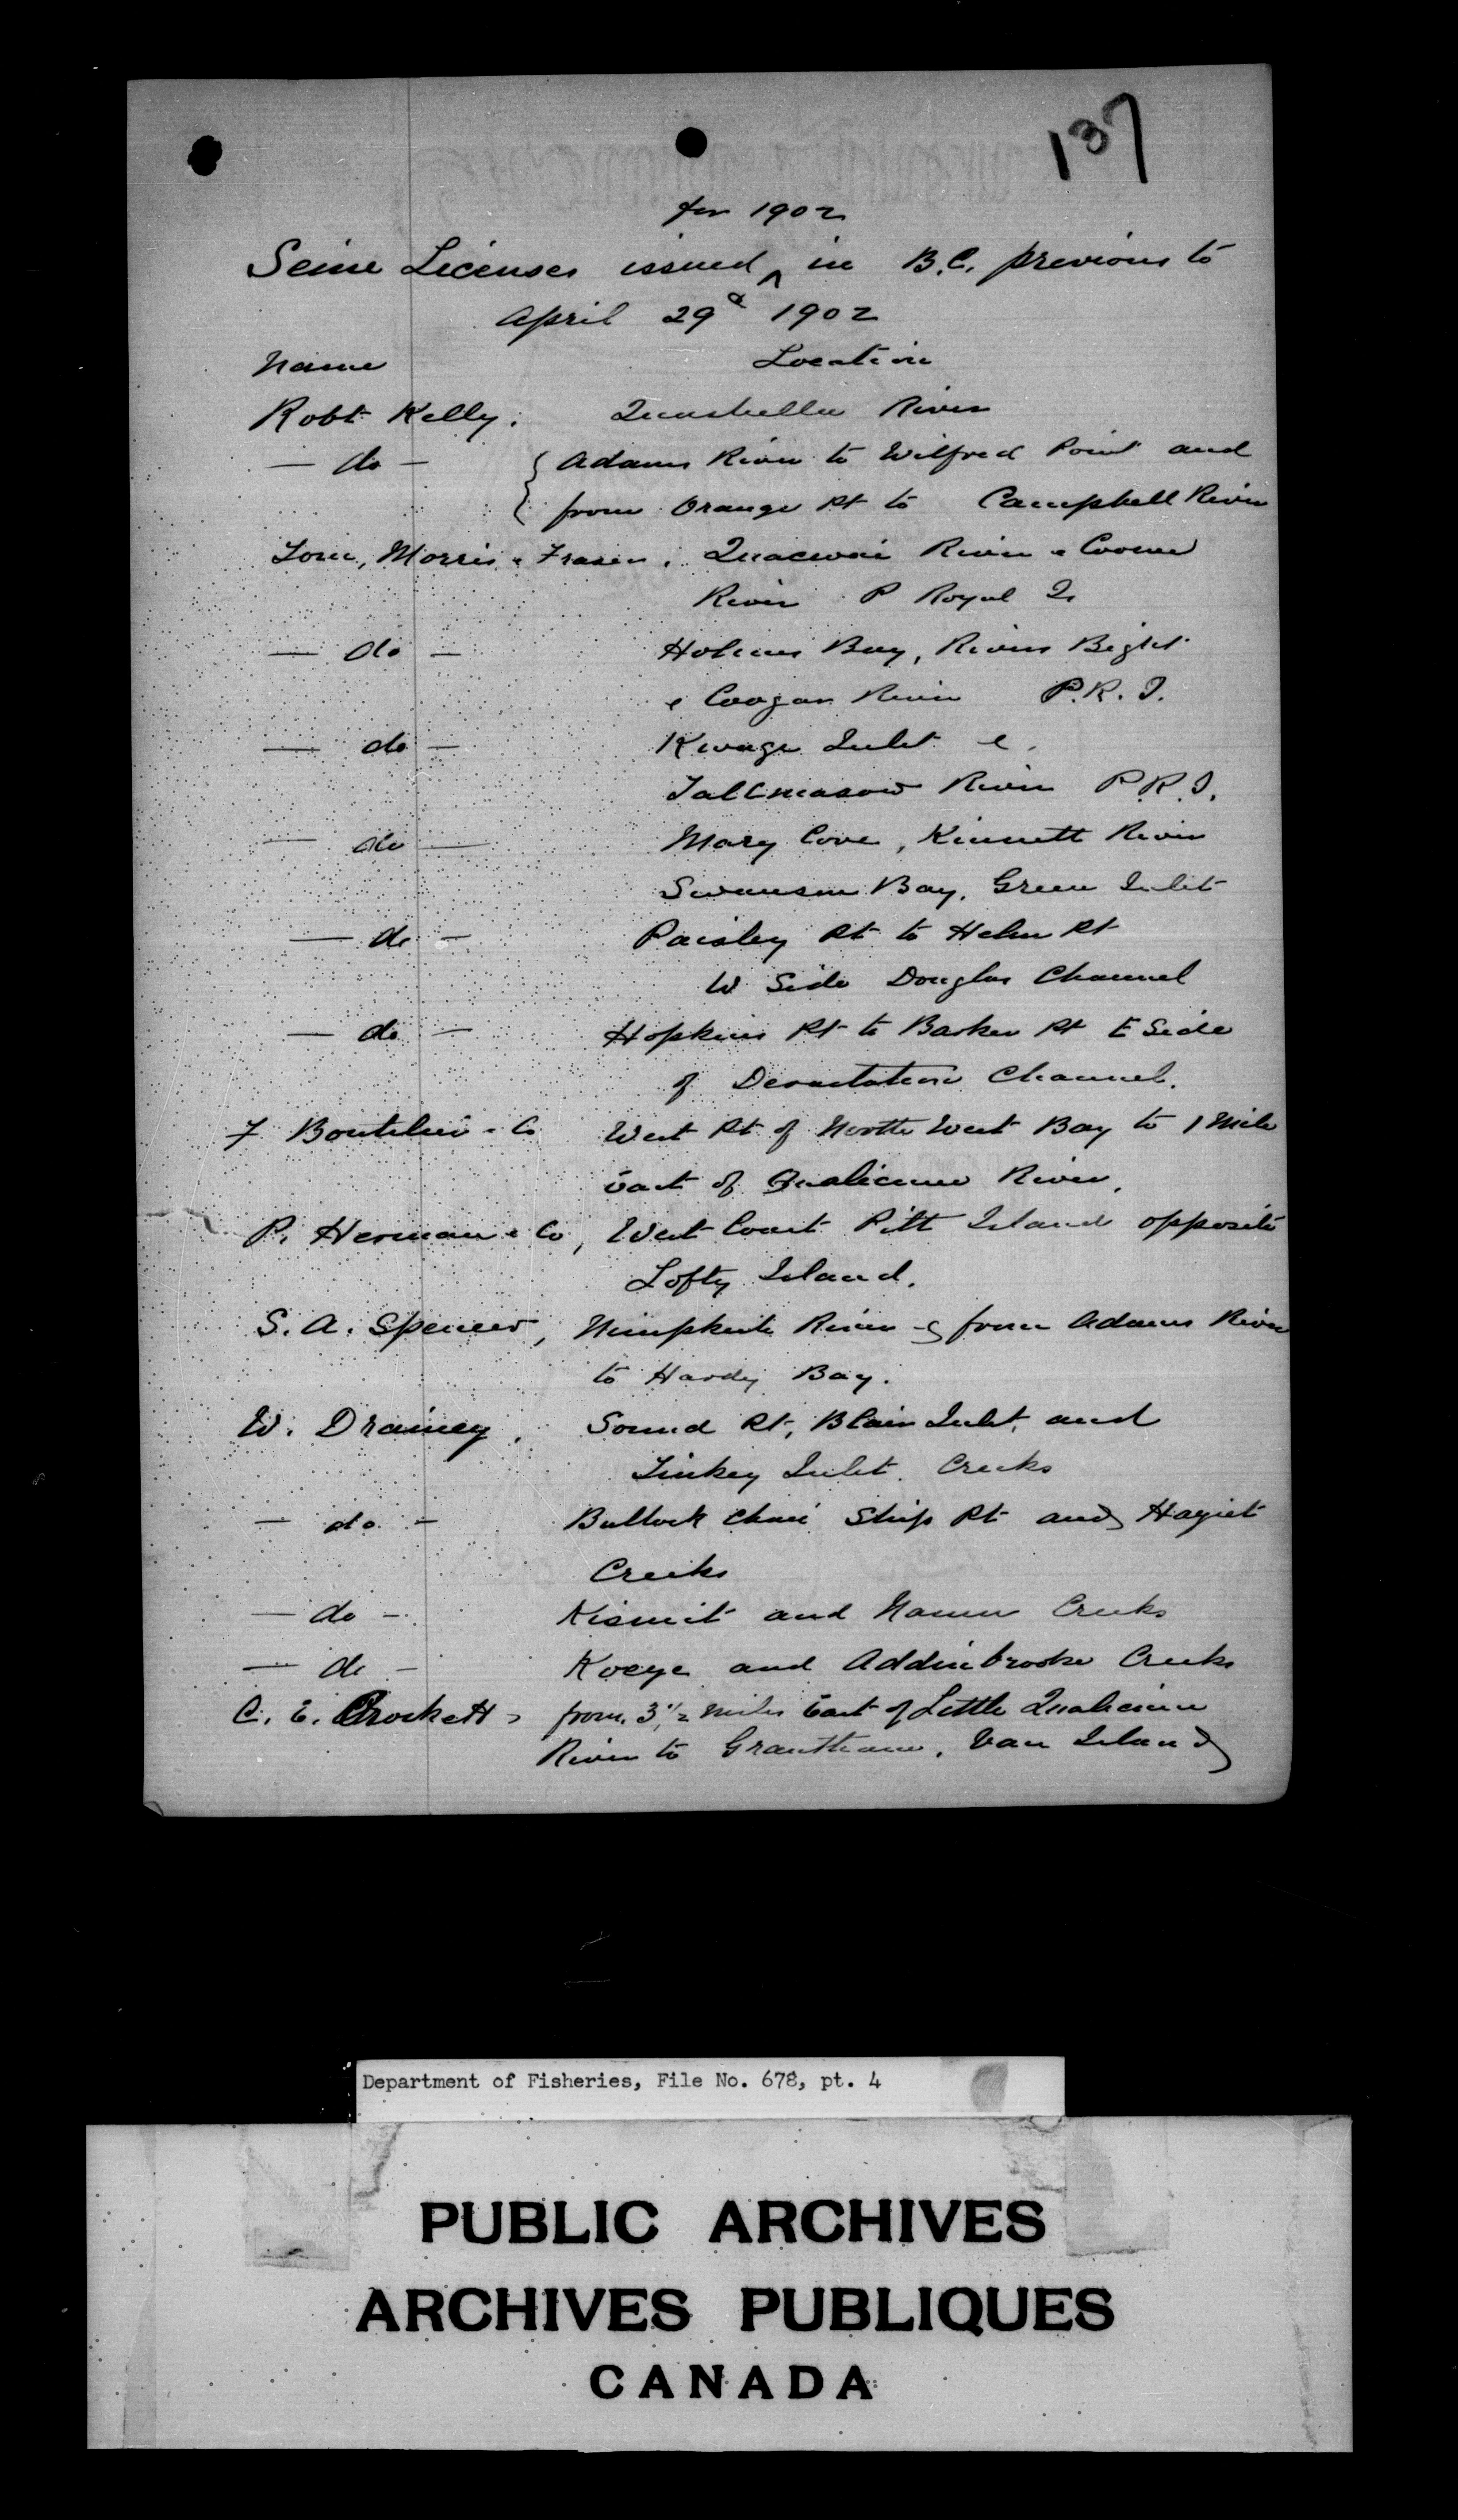 137
for 1902
Seine Licenses issued ^ in B.C. previous to
April 29th 1902
Name Location
Robt Kelly. River
— do — { Adams River to Wilfred Point and
from Orange Pt to Campbell River
Morris & Fraser. River &
River P Royal Is
— do — Holmes Bay, Rivers Bight
& Coogan River P.R.I.
— do — Inlet &
River P.R.I.
— do — Mary Cove, Kinnett River
Swanson Bay, Green Inlet
— do — Paisley Pt to Helm Pt
W Side Douglas Channel
— do — Hopkins Pt to Barker Pt E Side
of Devastation Channel.
F Boutilier & Co West Pt of North West Bay to 1 Mile
East of Qualicum River.
P. Herman & Co, West Coast Pitt Island opposite
Lofty Island.
S. A. Spencer, Nimpkish River & from Adams River
to Hardy Bay.
W. Drainey. Sound Pt, Blair Inlet, and
Tinkey Inlet. Creeks
— do — Bullock Ship Pt and
Creeks
— do — and Namu Creeks
— do — Koeye and Addinbrooke Creeks
C. E. Crockett, from 3 1/2 miles East of Little Qualicum
River to Grantham, Van Island
Department of Fisheries, File No. 678, pt. 4
PUBLIC ARCHIVES
ARCHIVES PUBLIQUES
CANADA